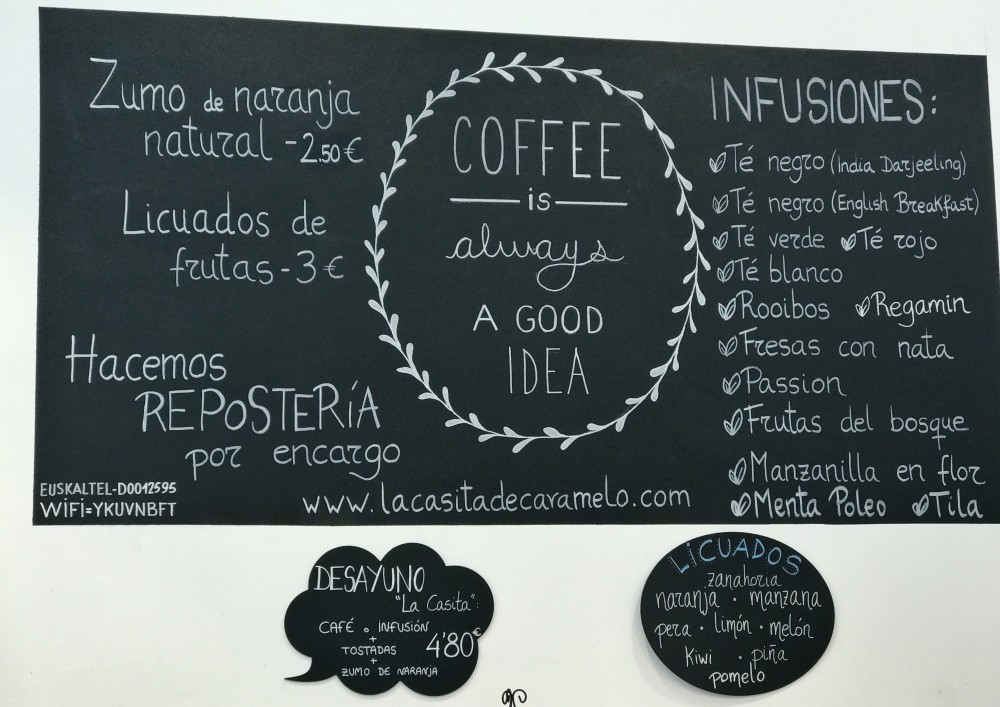 Zumo de naranja
natural - 2.50€
Licuados de
frutas - 3 €
Hacemos
REPOSTERíA
por encargo
EUSKALTEL-D0012595
WiFi=YKUVNBFT
COFFEE
is
always
A GOOD
IDEA
www.lacasitadecaramelo.com
INFUSIONES:
Té negro (India Darjeeling)
Té negro (English Breakfast)
Té verde Té rojo
Té blanco
Rooibos Regamin
Fresas con nata
Passion
Frutas del bosque
Manzanilla en flor
Menta Poleo Tila
DESAYUNO
"La Casita":
CAFÉ o INFUSIÓN
+
TOSTADAS 4'80€
+
ZUMO DE NARANJA
LiCUADOS
zanahoria
naranja · manzana
pera · limón · melón
Kiwi · piña
pomelo